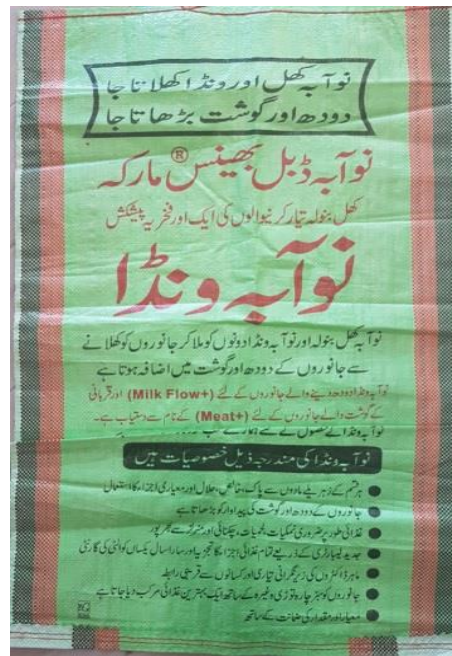 نوآبہ کھل اور ونڈا کھلاتا جا
دودھ اور گوشت بڑھاتا جا
نوآبہ ڈبل بھینس® مارکہ
کھل بنولہ تیار کرنیوالوں کی ایک اور فخریہ پیشکش
نوآبہ ونڈا
نوآبہ کھل بنولہ اور نوآبہ ونڈا دونوں کو ملا کر جانوروں کو کھلانے
سے جانوروں کے دودھ اور گوشت میں اضافہ ہوتا ہے
نوآبہ ونڈا دودھ دینے والے جانوروں کے لئے (Milk Flow+) اور قربانی
کے گوشت والے جانوروں کے لئے (Meat+) کے نام سے دستیاب ہے۔
نوآبہ ونڈا کے حصول کے
نوآبہ ونڈا کی مندرجہ ذیل خصوصیات ہیں
ہر قسم کے زہریلے مادوں سے پاک، خالص، حلال اور معیاری اجزاء کا استعمال
جانوروں کے دودھ اور گوشت کی پیداوار کو بڑھاتا ہے
غذائی طور پر ضروری نمکیات، لحمیات، چکنائی اور منرلز سے بھرپور
جدید لیبارٹری کے ذریعے تمام غذائی اجزاء کا تجزیہ اور سارا سال یکساں کوالٹی کی گارنٹی
ماہر ڈاکٹروں کی زیر نگرانی تیاری اور کسانوں سے قریبی رابطہ
جانوروں کو سبز چارہ توڑی وغیرہ کے ساتھ ایک بہترین غذائی مرکب دیا جاتا ہے
معیار اور مقدار کی ضمانت کے ساتھ